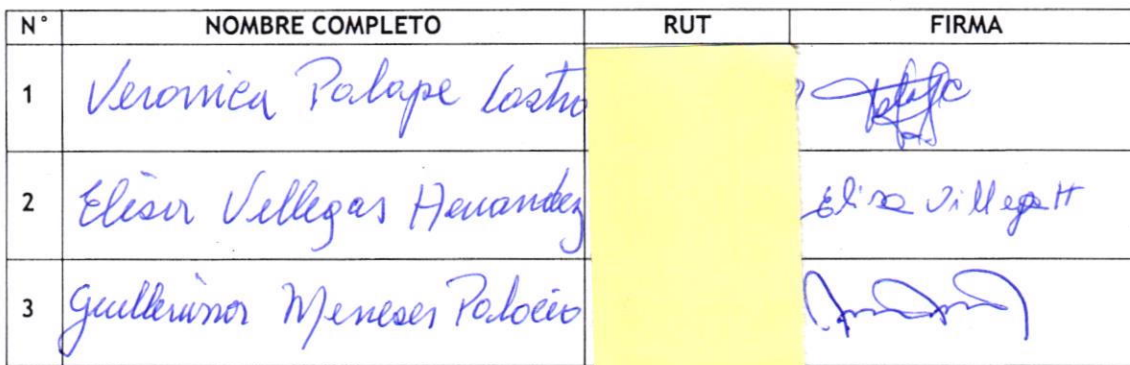 N° NOMBRE COMPLETO RUT FIRMA
1 Veronica Palape Castro
2 Elisa Villegas Hernandez Elisa Villega H
3 Guillermina Meneses Palacio